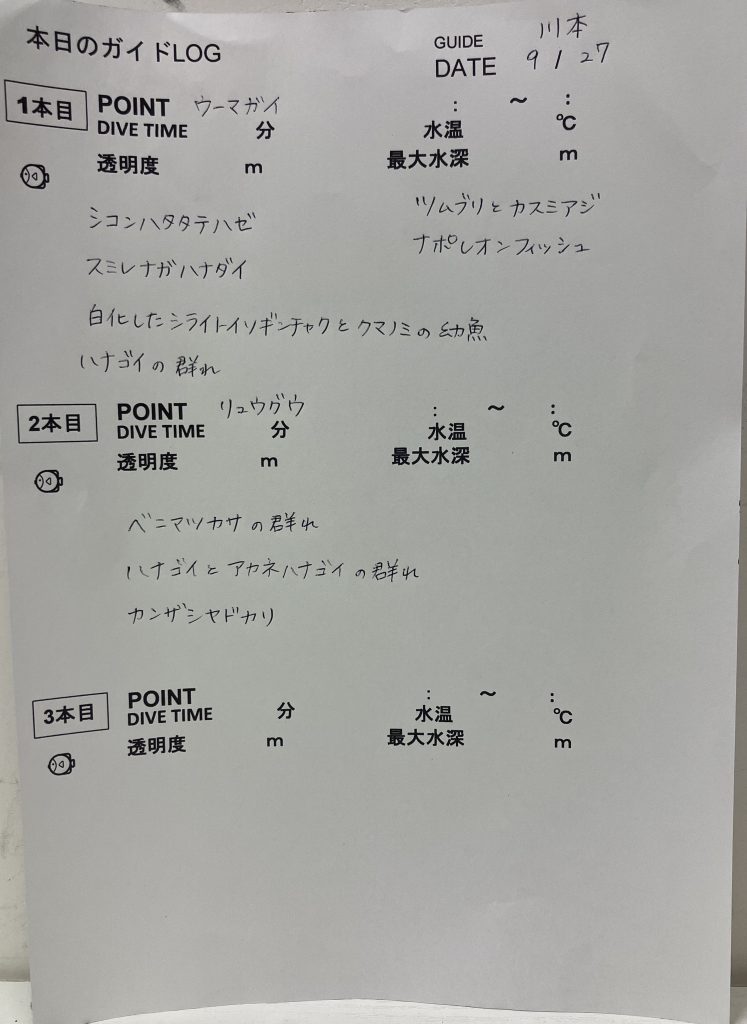 本日のガイドLOG
GUIDE 川本
DATE 9/27
1本目 POINT ウーマガイ : ～ :
DIVE TIME 分 水温 ℃
透明度 m 最大水深 m
シコンハタタテハゼ ツムブリとカスミアジ
スミレナガハナダイ ナポレオンフィッシュ
白化したシライトイソギンチャクとクマノミの幼魚
ハナゴイの群れ
2本目 POINT リュウグウ : ～ :
DIVE TIME 分 水温 ℃
透明度 m 最大水深 m
ベニマツカサの群れ
ハナゴイとアカネハナゴイの群れ
カンザシヤドカリ
3本目 POINT : ～ :
DIVE TIME 分 水温 ℃
透明度 m 最大水深 m